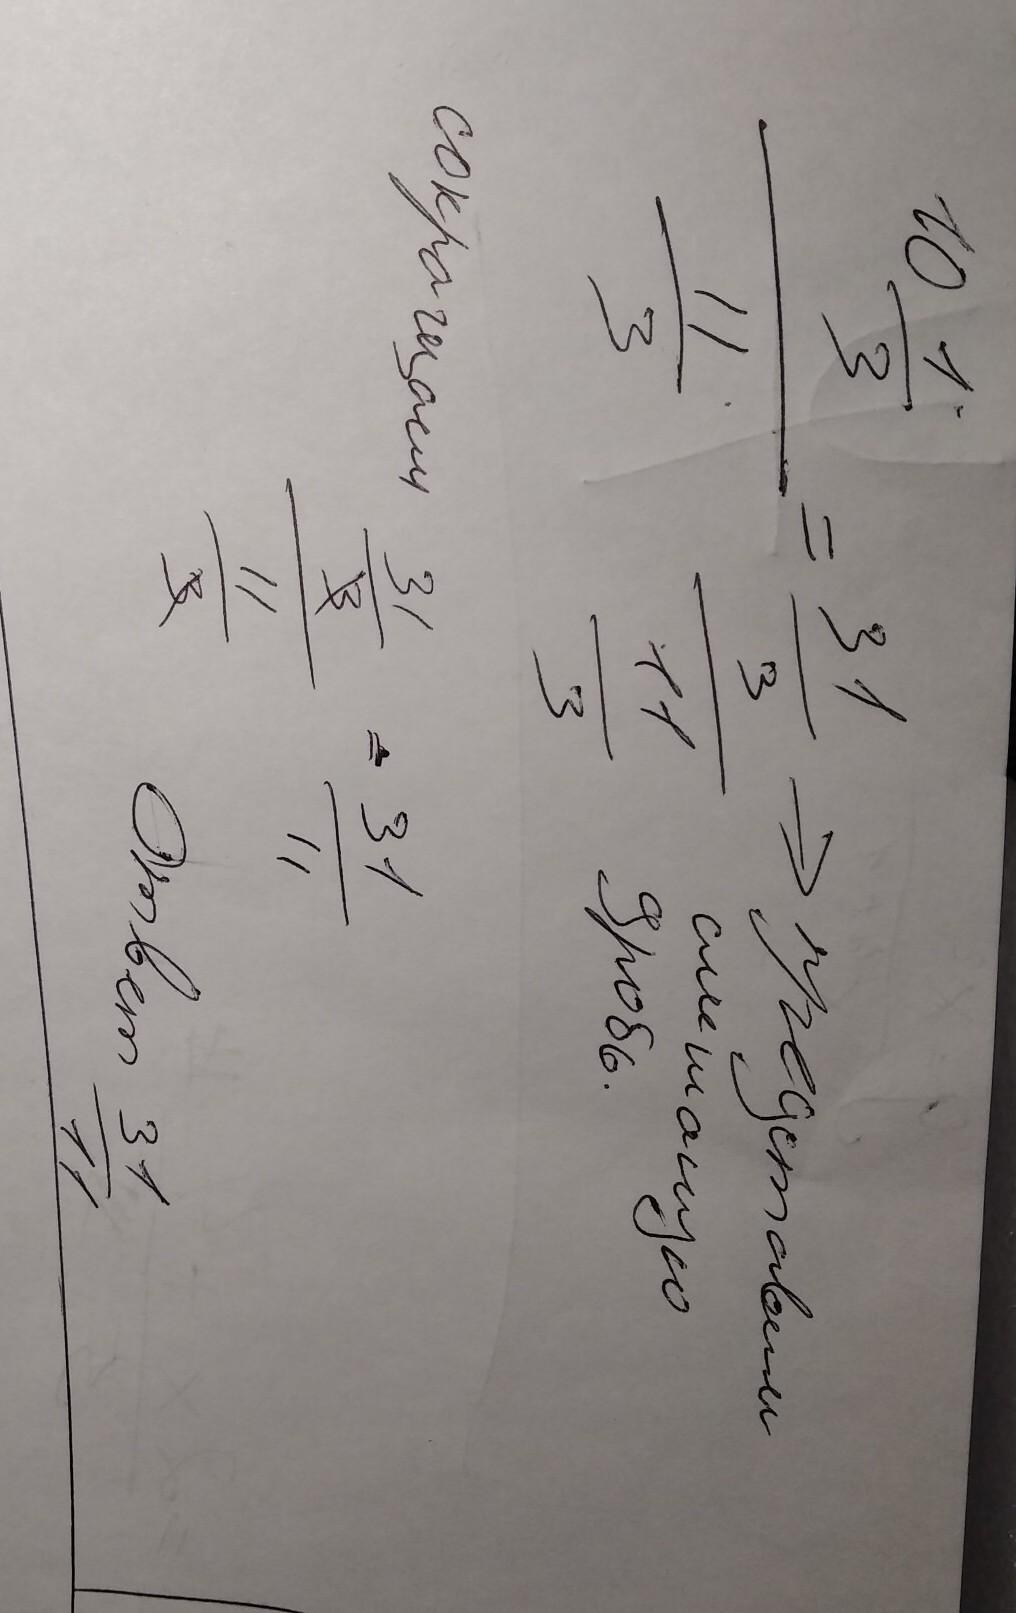 10 1/3 / 11/3 = 31/3 / 11/3 → представим
смешаную
дробь.
сокращаем 31/3 / 11/3 = 31/11
Ответ 31/11